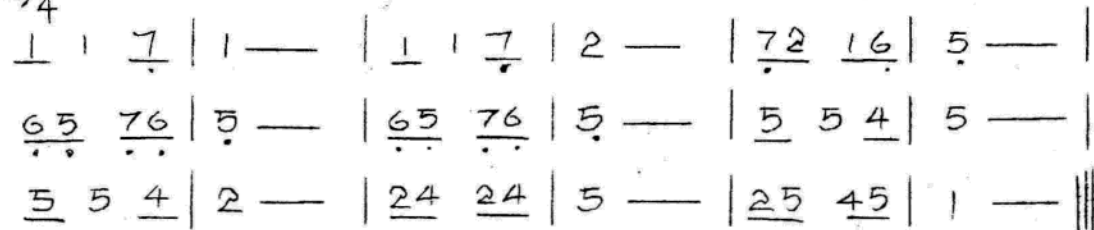 4
1 1 7̣ | 1 — | 1 1 7̣ | 2 — | 7̣2 16̣ | 5̣ — |
6̣5̣ 7̣6̣ | 5̣ — | 6̣5̣ 7̣6̣ | 5̣ — | 5 5 4 | 5 — |
5 5 4 | 2 — | 24 24 | 5 — | 25 45 | 1 — ||